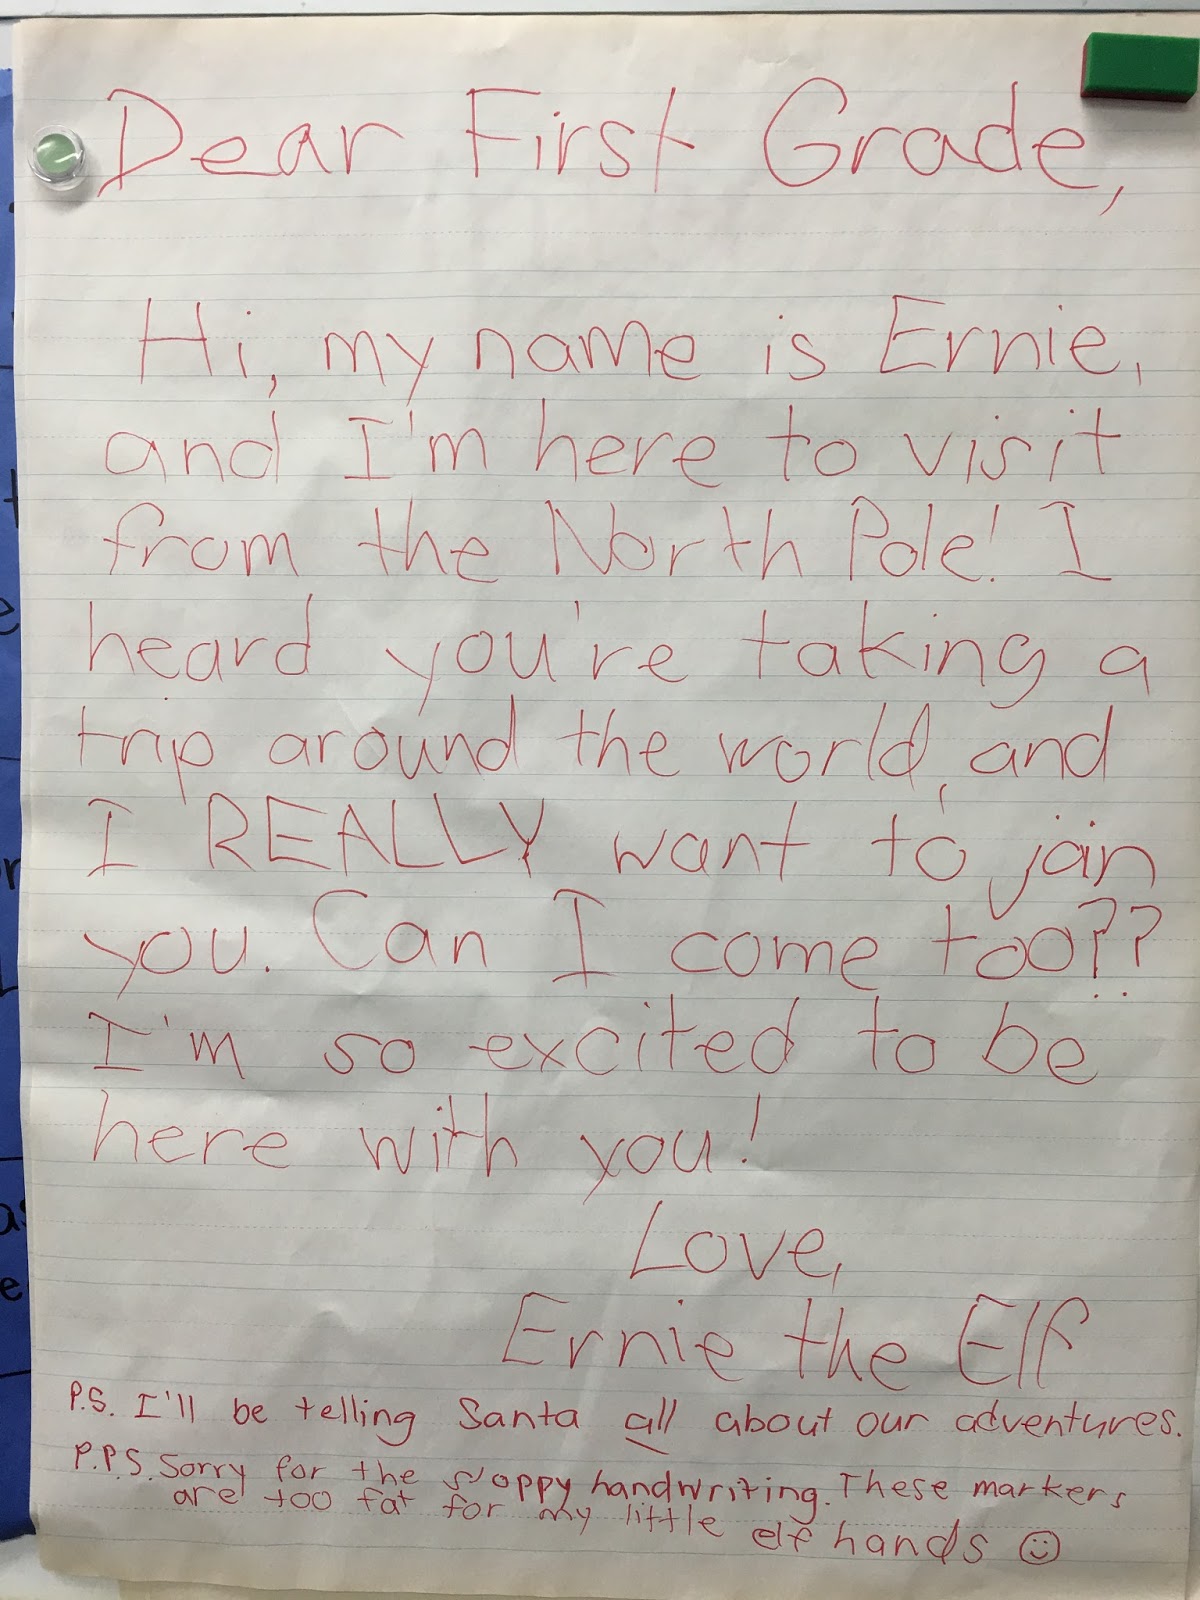 Dear First Grade,
Hi, my name is Ernie,
and I'm here to visit
from the North Pole! I
heard you're taking a
trip around the world, and
I REALLY want to join
you. Can I come too??
I'm so excited to be
here with you!
Love,
Ernie the Elf
P.S. I'll be telling Santa all about our adventures.
P.P.S. Sorry for the sloppy handwriting. These markers
are too fat for my little elf hands ☺